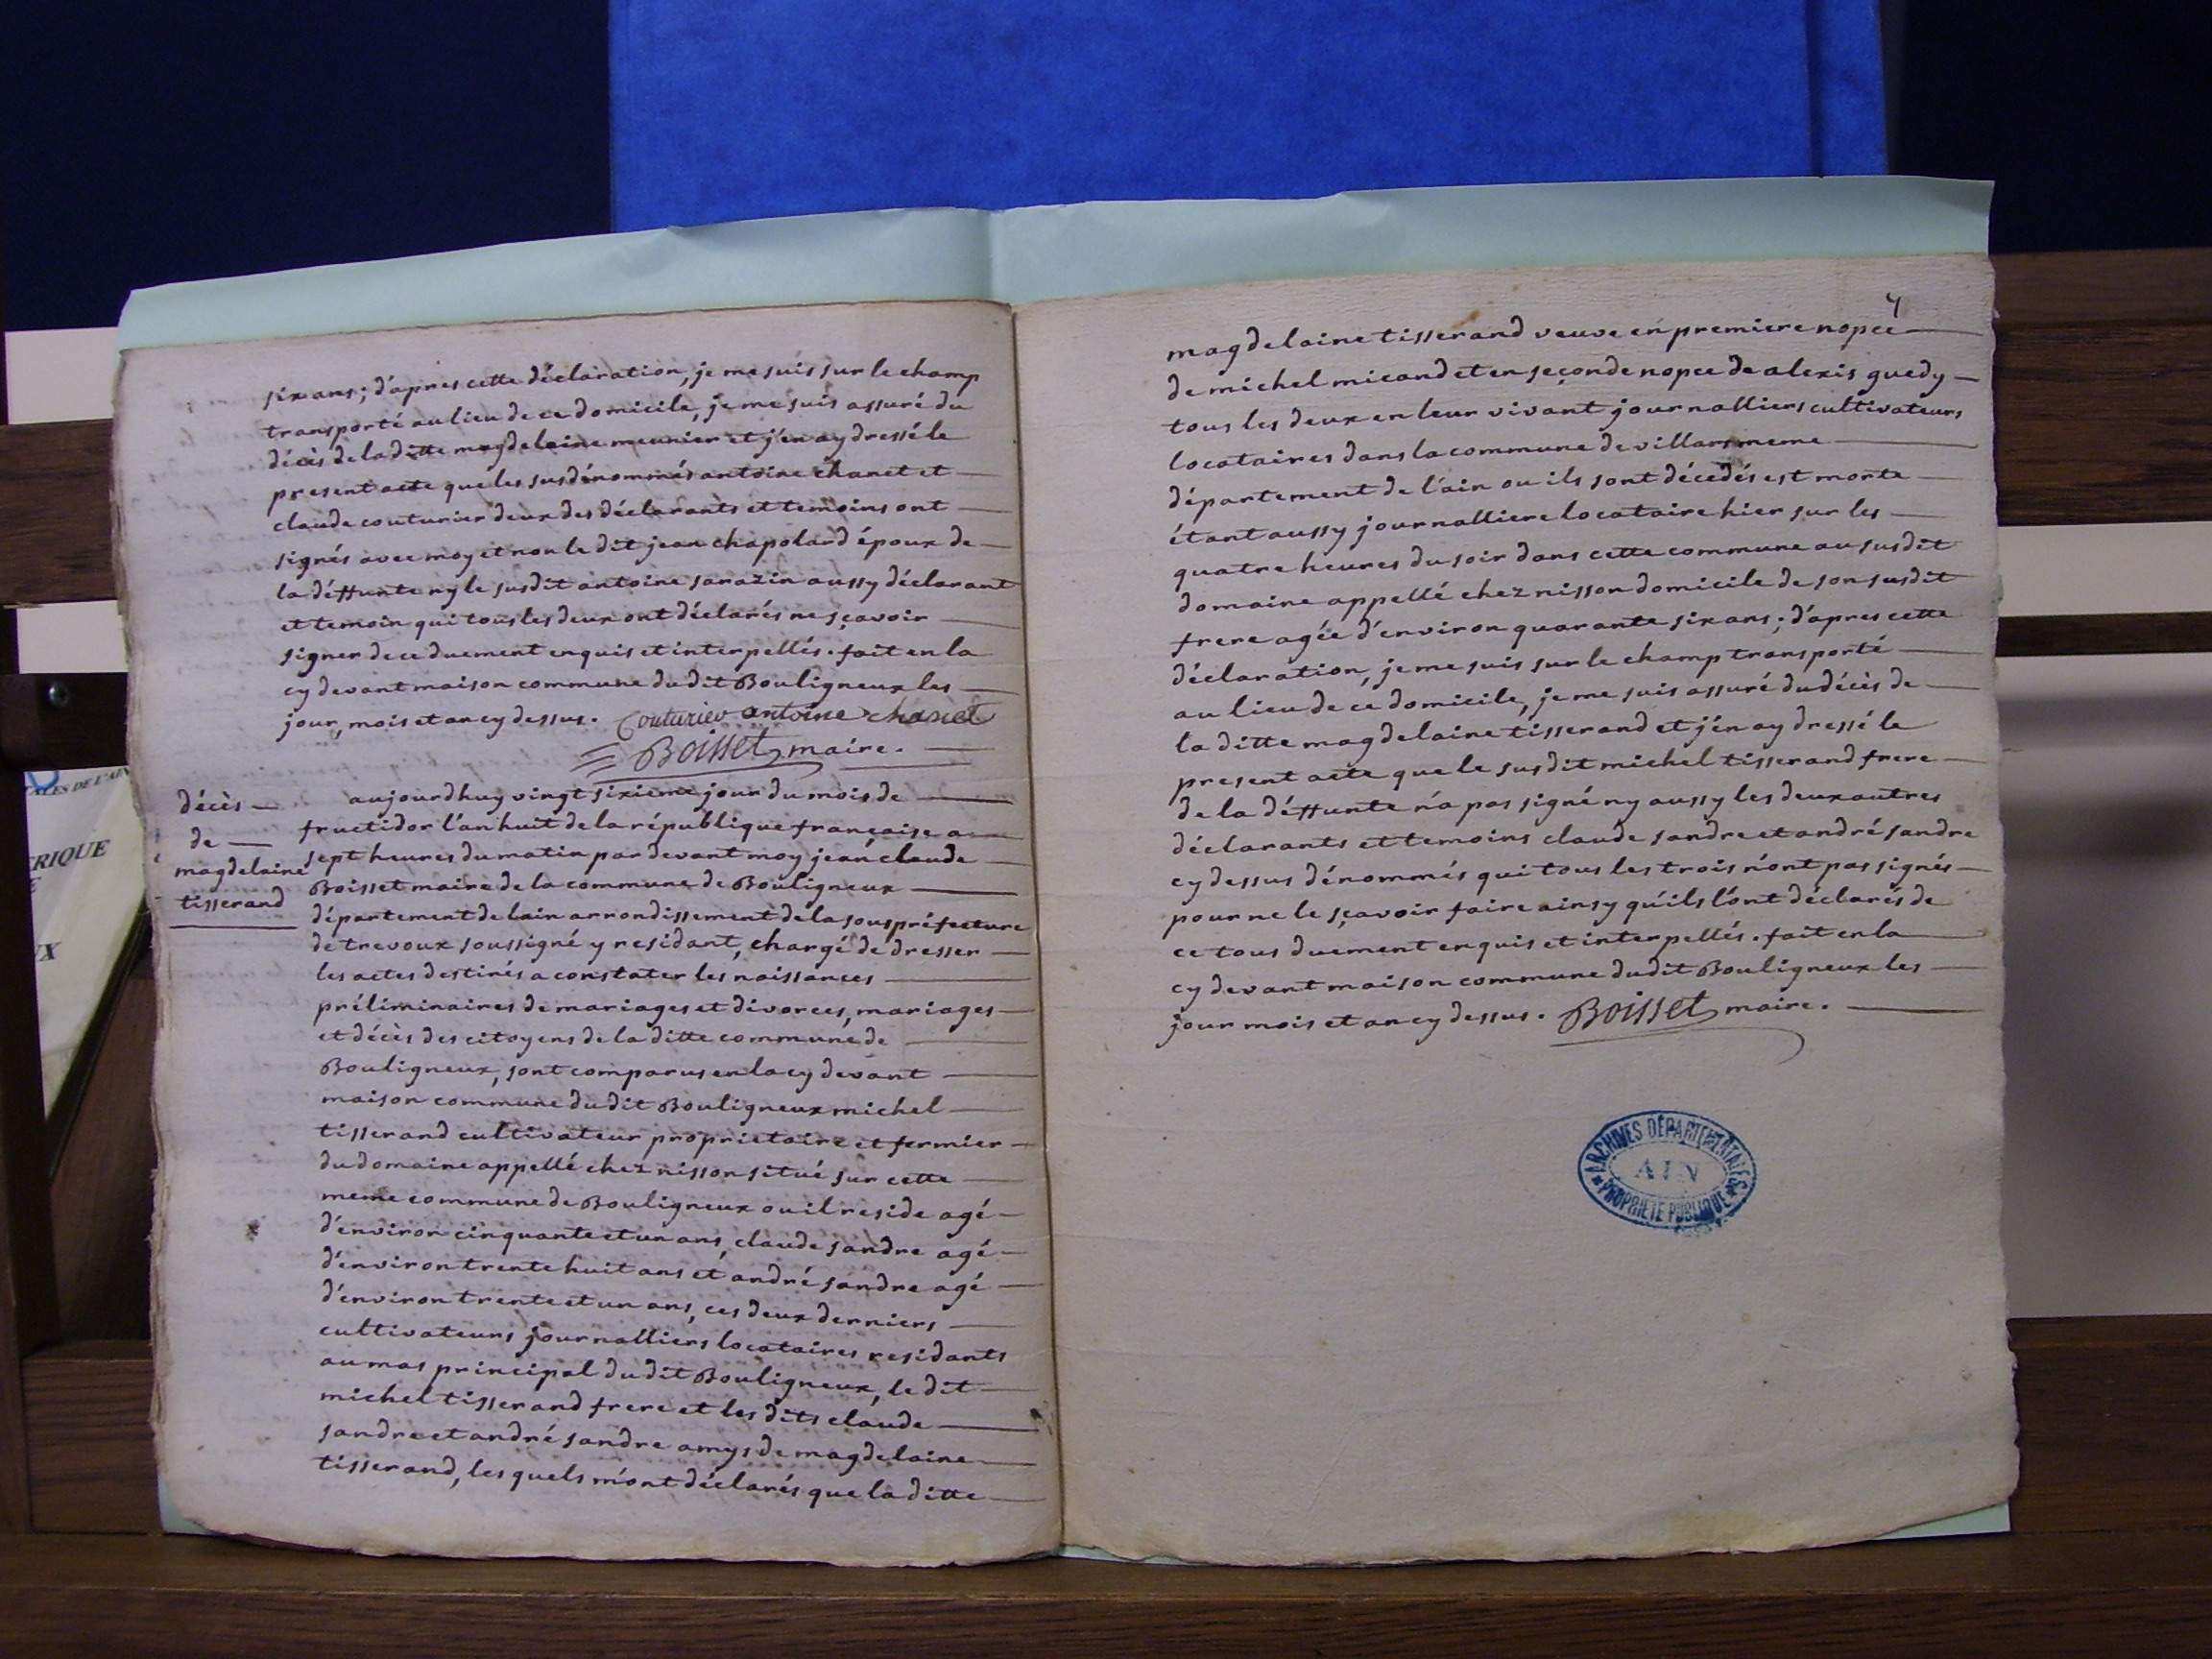 six ans; d'apres cette déclaration, je me suis sur le champ
transporté au lieu de ce domicile, je me suis assuré du
décès de la ditte magdelaine meunier et j'en ay dressé le
present acte que les susdénommés antoine chanet et
claude couturier deux des déclarants et temoins ont
signés avec moy et non le dit jean chapolard époux de
la déffunte ny le susdit antoine sarazin aussy déclarant
et temoin qui tous les deux ont déclarés ne sçavoir
signer de ce duement enquis et interpellés. fait en la
cy devant maison commune du dit Bouligneux les
jour, mois et an cy dessus. Couturier antoine chanet
Boisset maire.
décès
de
magdelaine
tisserand
aujourdhuy vingt sixieme jour du mois de
fructidor l'an huit de la république française a
sept heures du matin par devant moy jean claude
Boisset maire de la commune de Bouligneux
département de lain arrondissement de la souspréfecture
de trevoux soussigné y residant, chargé de dresser
les actes destinés a constater les naissances
préliminaires de mariages et divorces, mariages
et décès des citoyens de la ditte commune de
Bouligneux, sont comparus en la cy devant
maison commune du dit Bouligneux michel
tisserand cultivateur proprietaire et fermier
du domaine appellé chez nisson situé sur cette
meme commune de Bouligneux ou il reside agé
d'environ cinquante et un ans, claude sandre agé
d'environ trente huit ans et andré sandre agé
d'environ trente et un ans, ces deux derniers
cultivateurs journalliers locataires residants
au mas principal du dit Bouligneux, le dit
michel tisserand frere et les dits claude
sandre et andré sandre amys de magdelaine
tisserand, les quels m'ont déclarés que la ditte
4
magdelaine tisserand veuve en premiere nopce
de michel micand et en seconde nopce de alexis guedy
tous les deux en leur vivant journalliers cultivateurs
locataires dans la commune de villars meme
département de l'ain ou ils sont décedés est morte
étant aussy journalliere locataire hier sur les
quatre heures du soir dans cette commune au susdit
domaine appellé chez nisson domicile de son susdit
frere agée d'environ quarante six ans; d'apres cette
déclaration, je me suis sur le champ transporté
au lieu de ce domicile, je me suis assuré du décès de
la ditte magdelaine tisserand et j'en ay dressé le
present acte que le susdit michel tisserand frere
de la déffunte n'a pas signé ny aussy les deux autres
déclarants et temoins claude sandre et andré sandre
cy dessus dénommés qui tous les trois n'ont pas signés
pour ne le sçavoir faire ainsy qu'ils l'ont déclarés de
ce tous duement enquis et interpellés. fait en la
cy devant maison commune dudit Bouligneux les
jour mois et an cy dessus. Boisset maire.
ARCHIVES DÉPARTEMENTALES
AIN
PROPRIÉTÉ PUBLIQUE
RIQUE